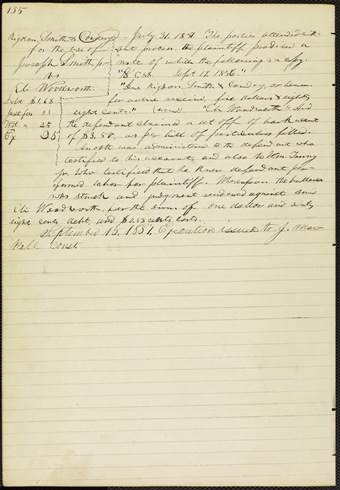 135
Rigdon, Smith & Cowdery July 31, 1837. The parties attended
for the use of set process, the plaintiff produced a
Joseph Smith jr note of which the following is a copy.
vs "$5.88 Sept 11. 1836."
Eli Woodworth "Due Rigdon Smith & Cowdery, or bearer
Debt $1.68 for value received, five dollars & eighty
eight cents." (Signed) Eli Woodworth" And
Wit " 25 the defendant claimed a set off of back account
Ex of $3.50, as per bill of particulars filed.
An oath was administered to the defendant who
certified to his account, and also to Hon Tinny
jr who certifies that he knew defendant performed
labor for plaintiff. Whereupon the ballance
was struck and judgment rendered against said
Eli Woodworth, for the sum of one dollar and sixty
eight cents debt, and $0.53 cents costs.
September 15, 1837. Execution issued to J. Markell
Const